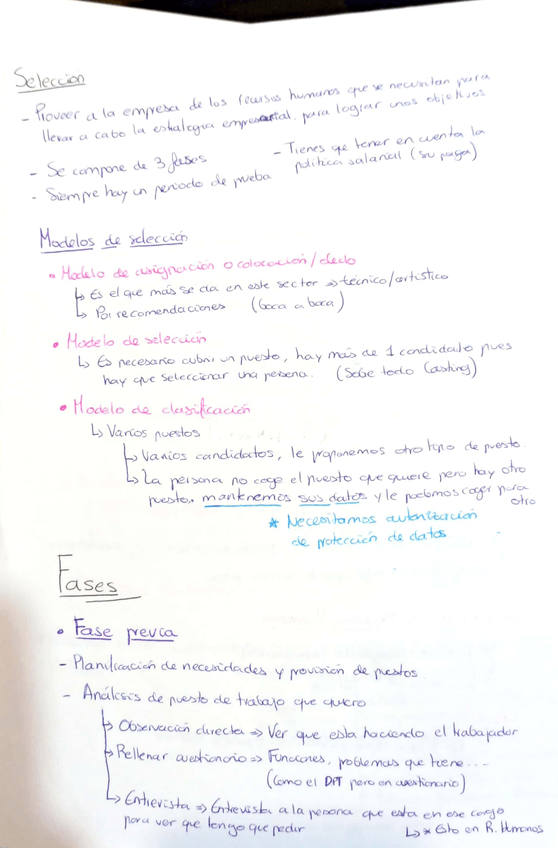 Selección
- Proveer a la empresa de los recursos humanos que se necesitan para
llevar a cabo la estrategia empresarial para lograr unos objetivos
- Se compone de 3 fases
- Siempre hay un periodo de prueba
- Tienes que tener en cuenta la
política salarial (su paga)
Modelos de selección
• Modelo de asignación o colocación/dedo
↳ Es el que más se da en este sector ⇒ técnico/artístico
↳ Por recomendaciones (boca a boca)
• Modelo de selección
↳ Es necesario cubrir un puesto, hay más de 1 candidato pues
hay que seleccionar una persona. (Sobre todo Casting)
• Modelo de clasificación
↳ Varios puestos
↳ Varios candidatos, le proponemos otro tipo de puesto.
↳ La persona no coge el puesto que quiere pero hay otro
puesto, mantenemos sus datos y le podemos coger para
otro
* Necesitamos autorización
de protección de datos
Fases
• Fase previa
- Planificación de necesidades y provisión de puestos
- Análisis de puesto de trabajo que quiero
↳ Observación directa ⇒ Ver que esta haciendo el trabajador
↳ Rellenar cuestionario ⇒ Funciones, problemas que tiene...
(Como el DPT pero en cuestionario)
↳ Entrevista ⇒ Entrevista a la persona que esta en ese cargo
para ver que tengo que pedir
↳ * Esto en R. Humanos